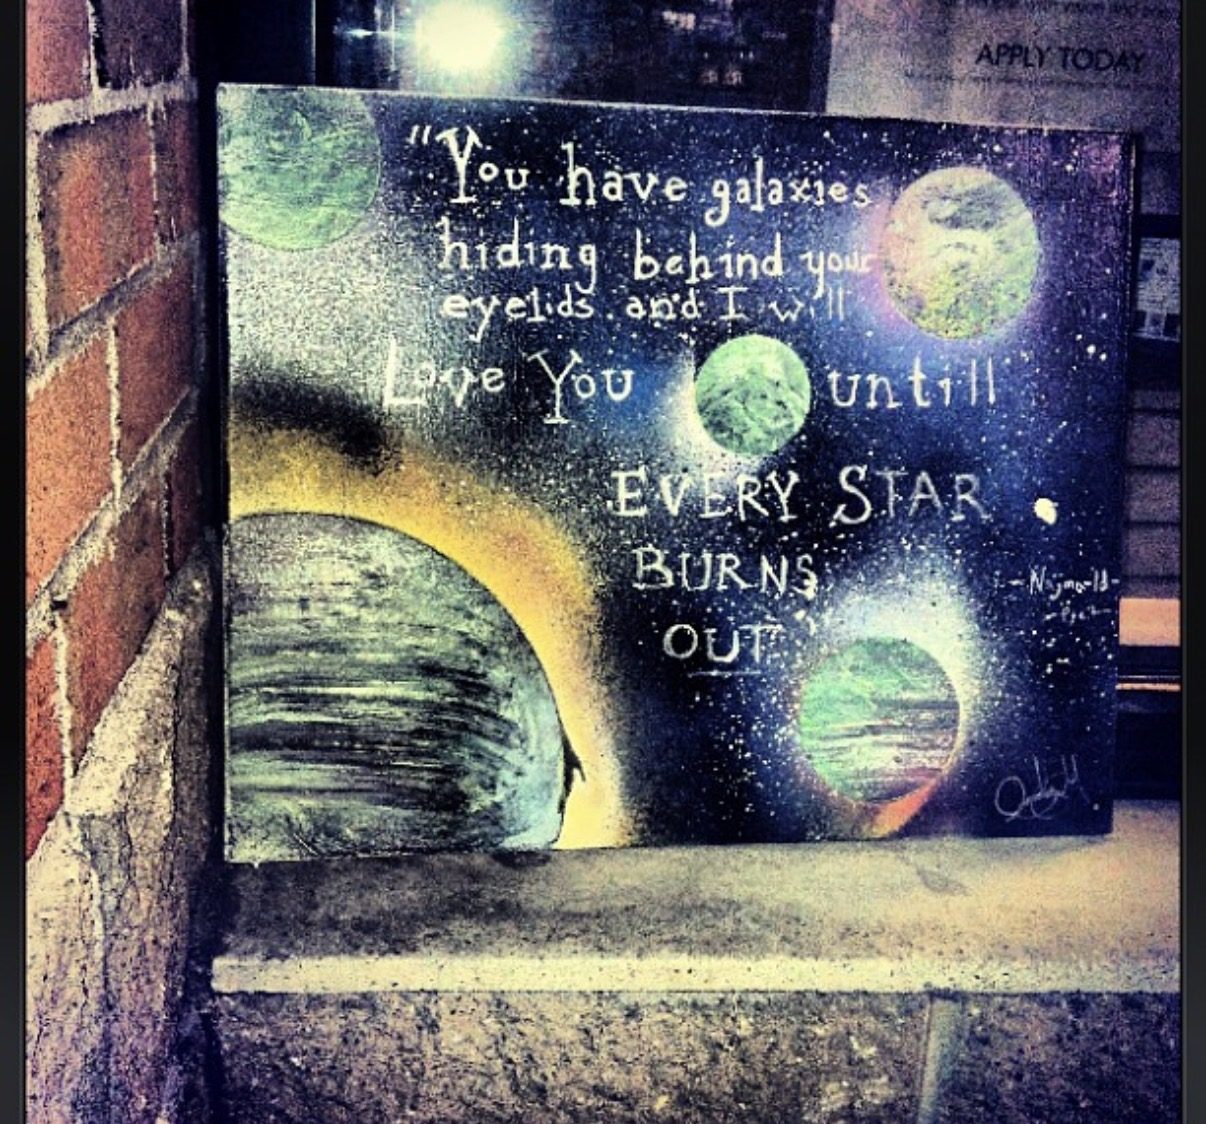 APPLY TODAY
"You have galaxies
hiding behind your
eyelids. and I will
Love You untill
EVERY STAR
BURNS
OUT"